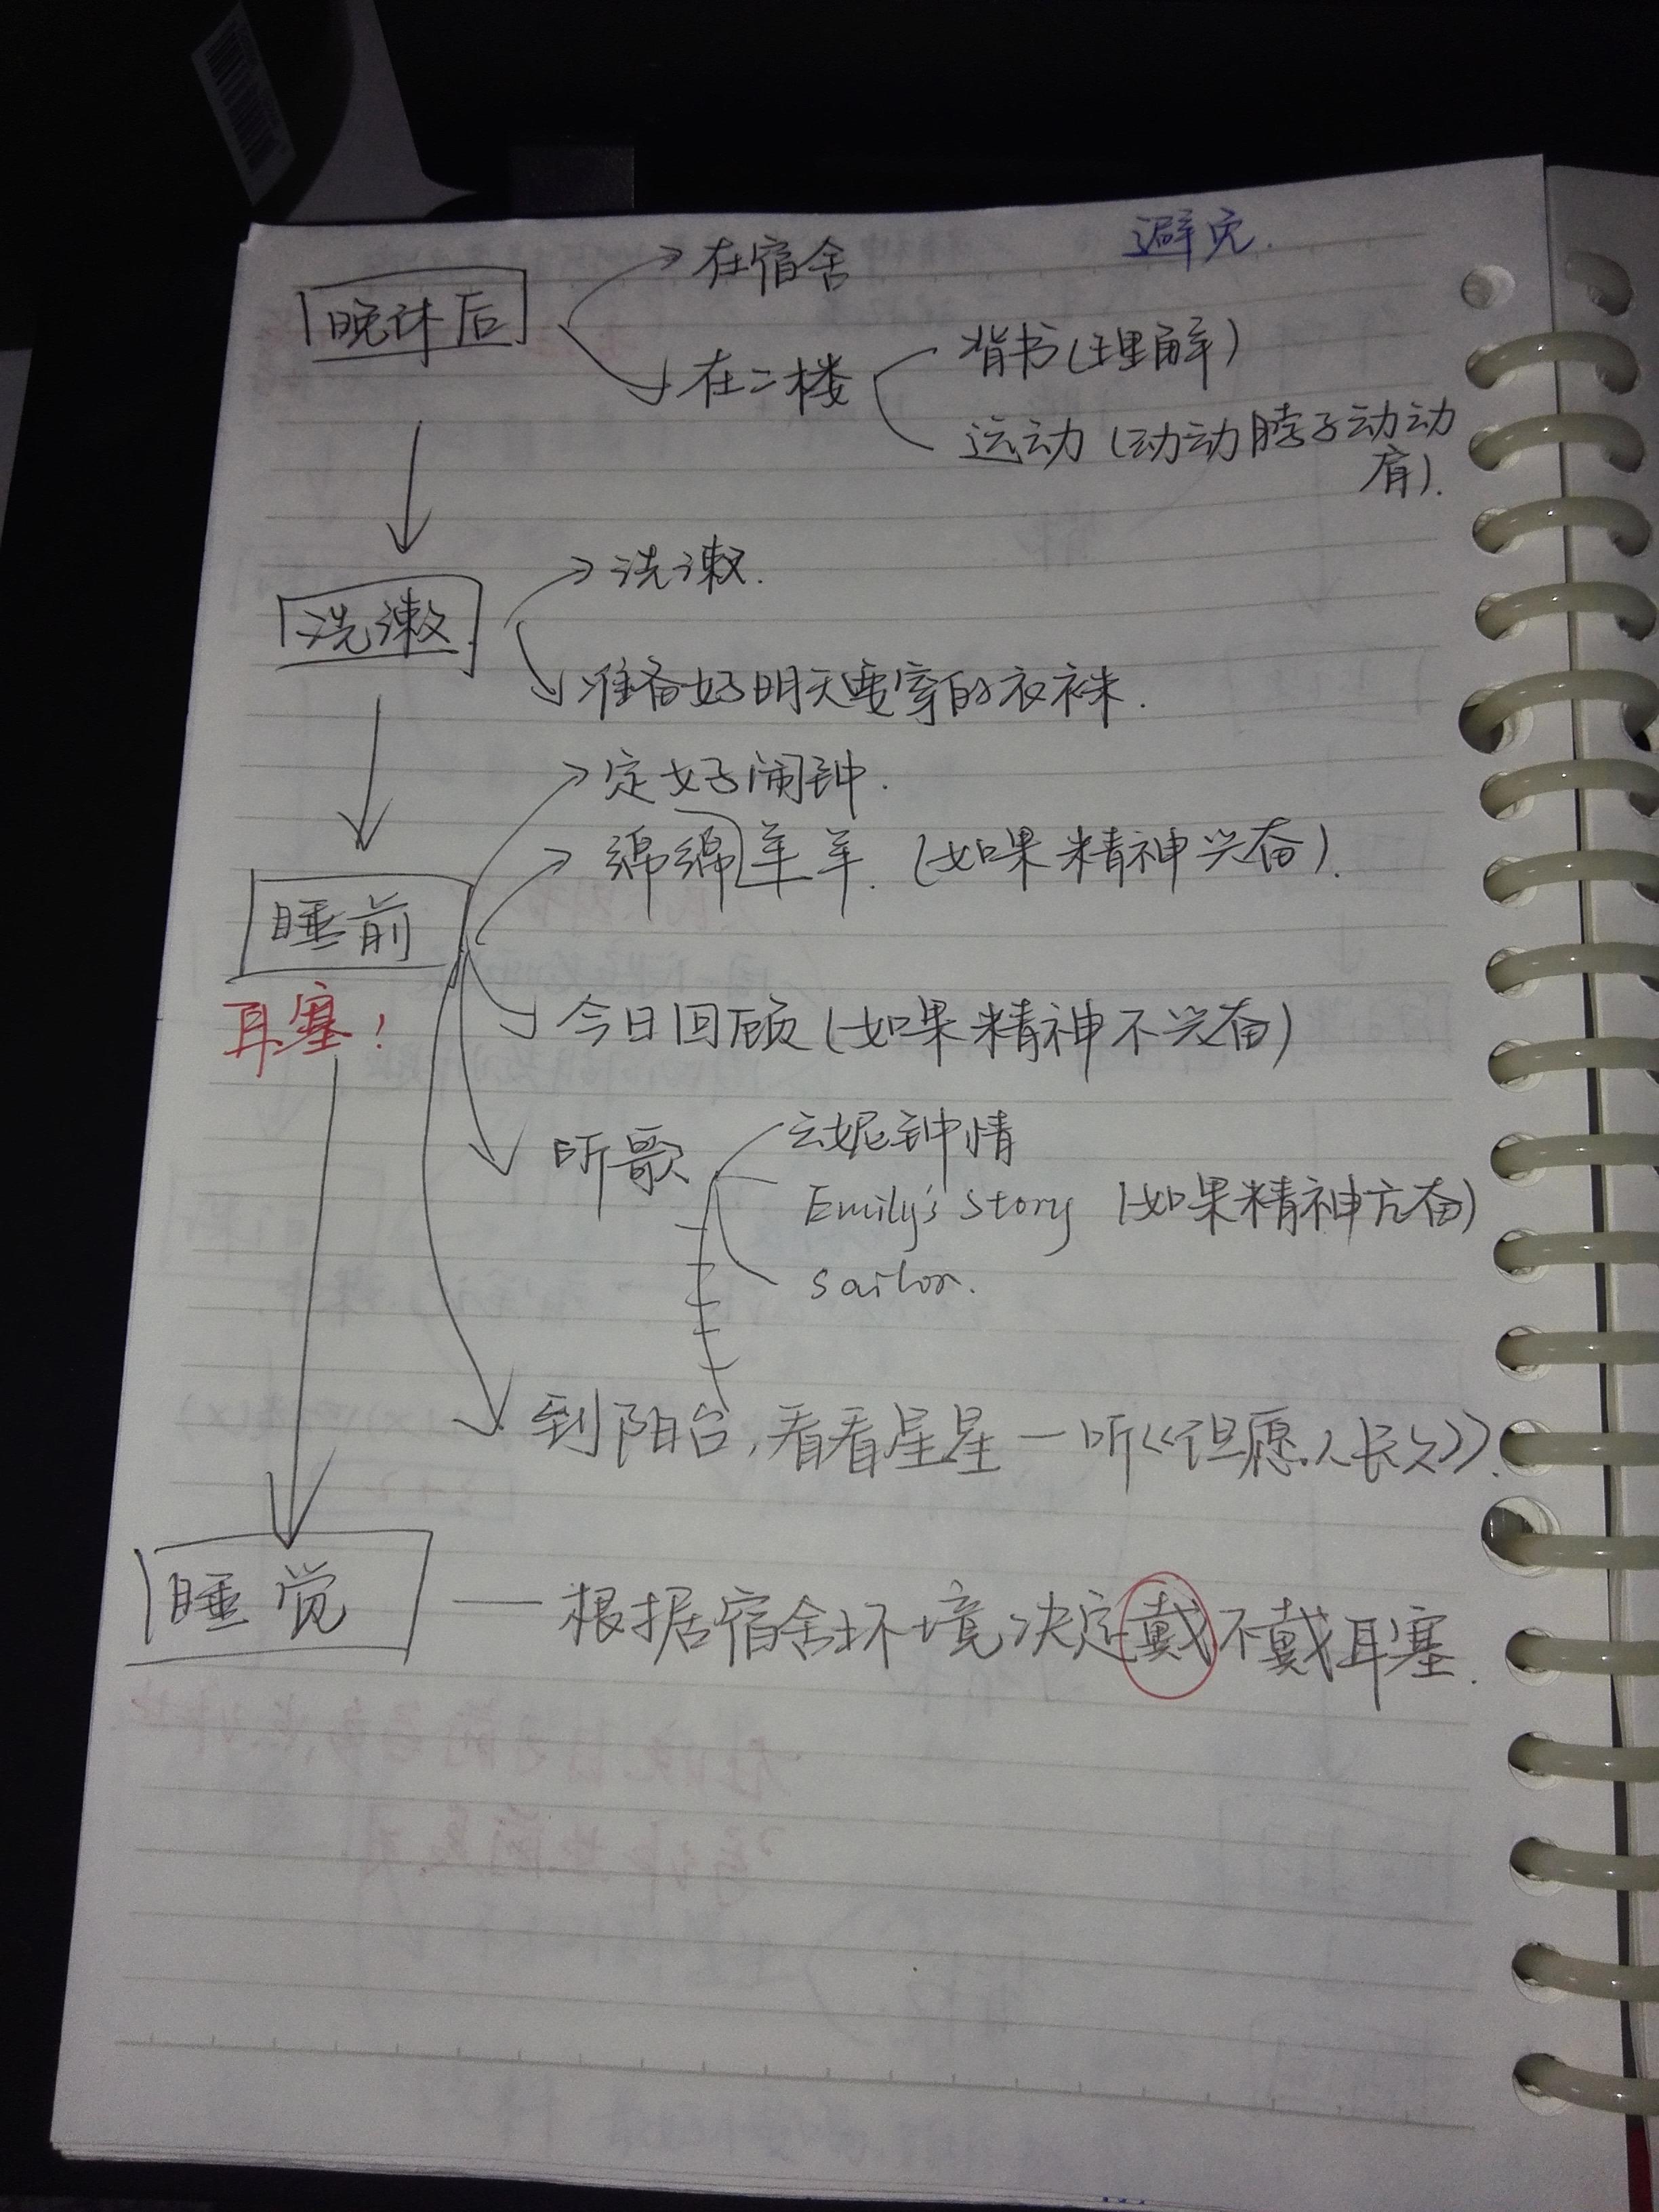 避免.
晚休后
在宿舍
在二楼
背书(理解)
运动(动动脖子动动
肩).
洗漱
洗漱.
准备好明天要穿的衣袜.
睡前
耳塞!
定好闹钟.
绵绵羊羊.(如果精神兴奋).
今日回顾(如果精神不兴奋)
听歌
钟情
Emily's Story (如果精神亢奋)
Sailor.
到阳台,看看星星—听《但愿人长久》.
睡觉
—根据宿舍环境决定戴不戴耳塞.